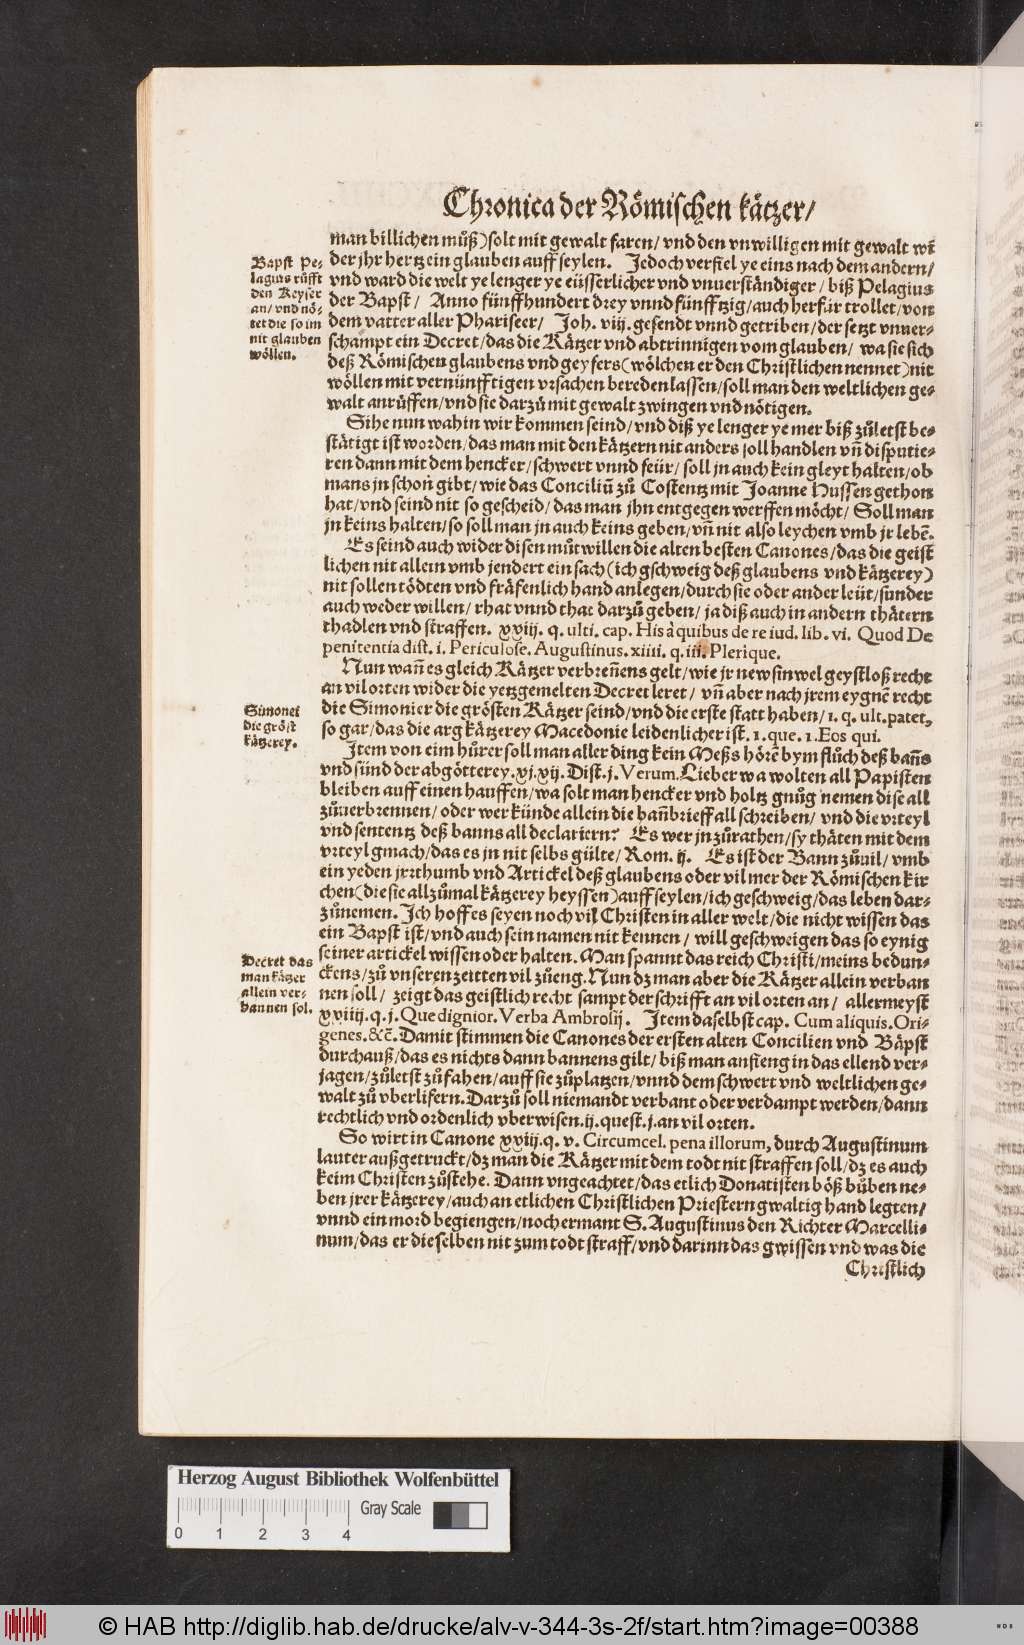 Chronica der Römischen kätzer/
man billichen můß) solt mit gewalt faren/ vnd den vnwilligen mit gewalt wi
der jhr hertz ein glauben auff seylen. Jedoch verfiel ye eins nach dem andern/
vnd ward die welt ye lenger ye eüsserlicher vnd vnuerständiger/ biß Pelagius
der Bapst/ Anno fünffhundert drey vnnd fünfftzig/ auch herfür trollet/ von
dem vatter aller Phariseer/ Joh. viij. gesendt vnnd getriben/ der setzt vnuer-
schampt ein Decret/ das die Kätzer vnd abtrinnigen vom glauben/ wa sie sich
deß Römischen glaubens vnd geyfers (wölchen er den Christlichen nennet) nit
wöllen mit vernünfftigen vrsachen bereden lassen/ soll man den weltlichen ge-
walt anrůffen/ vnd sie darzů mit gewalt zwingen vnd nötigen.
Bapst Pe-
lagius růfft
den Keyser
an/ vnd nö-
tet die so im
nit glauben
wöllen.
Sihe nun wahin wir kommen seind/ vnd diß ye lenger ye mer biß zůletst be-
stätigt ist worden/ das man mit den kätzern nit anders soll handlen vñ disputie-
ren dann mit dem hencker/ schwert vnnd feür/ soll jn auch kein gleyt halten/ ob
mans jn schon gibt/ wie das Conciliũ zů Costentz mit Joanne Hussen gethon
hat/ vnd seind nit so gescheid/ das man jhn entgegen werffen möcht/ Soll man
jn keins halten/ so soll man jn auch keins geben/ vñ nit also leychen vmb jr lebẽ.
Es seind auch wider disen můtwillen die alten besten Canones/ das die geist
lichen nit allein vmb jendert ein sach (ich gschweig deß glaubens vnd kätzerey)
nit sollen tödten vnd fräfenlich hand anlegen/ durch sie oder ander leüt/ sunder
auch weder willen/ rhat vnnd that darzů geben/ ja diß auch in andern thätern
thadlen vnd straffen. xxiij. q. ulti. cap. His à quibus de re iud. lib. vi. Quod De
penitentia dist. i. Periculose. Augustinus. xiiii. q. iii. Plerique.
Nun wañ es gleich Kätzer verbreñens gelt/ wie jr new sinwel geystloß recht
an vil orten wider die yetzgemelten Decret leret/ vñ aber nach jrem eygnẽ recht
die Simonier die grösten Kätzer seind/ vnd die erste statt haben/ 1. q. ult. patet,
so gar/ das die arg kätzerey Macedonie leidenlicher ist. 1. que. 1. Eos qui.
Simonei
die gröst
kätzerey.
Item von eim hůrer soll man aller ding kein Meß hörẽ bym flůch deß bañs
vnd sünd der abgötterey. xj. xij. Dist. j. Verum. Lieber wa wolten all Papisten
bleiben auff einen hauffen/ wa solt man hencker vnd holtz gnůg nemen dise all
zůuerbrennen/ oder wer künde allein die bañbrieff all schreiben/ vnd die vrteyl
vnd sententz deß banns all declariern? Es wer jn zůrathen/ sy thäten mit dem
vrteyl gmach/ das es jn nit selbs gülte/ Rom. ij. Es ist der Bann zůuil/ vmb
ein yeden jrrthumb vnd Artickel deß glaubens oder vil mer der Römischen kir
chen (die sie allzůmal kätzerey heyssen) auff seylen/ ich geschweig/ das leben dar-
zůnemen. Ich hoff es seyen noch vil Christen in aller welt/ die nicht wissen das
ein Bapst ist/ vnd auch sein namen nit kennen/ will geschweigen das so eynig
seiner artickel wissen oder halten. Man spannt das reich Christi/ meins bedun-
ckens/ zů vnseren zeitten vil zů eng. Nun dz man aber die Kätzer allein verban
nen soll/ zeigt das geistlich recht sampt der schrifft an vil orten an/ allermeyst
xxiiij. q. j. Que dignior. Verba Ambrosij. Item daselbst cap. Cum aliquis. Ori-
genes. &c̃. Damit stimmen die Canones der ersten alten Concilien vnd Bäpst
durchauß/ das es nichts dann bannens gilt/ biß man anfieng in das ellend ver-
jagen/ zůletst zů fahen/ auff sie zůplatzen/ vnnd dem schwert vnd weltlichen ge-
walt zů vberlifern. Darzů soll niemandt verbant oder verdampt werden/ dann
rechtlich vnd ordenlich vberwisen. ij. quest. j. an vil orten.
Decret das
man kätzer
allein ver-
bannen sol.
So wirt in Canone xxiij. q. v. Circumcel. pena illorum, durch Augustinum
lauter außgetruckt/ dz man die Kätzer mit dem todt nit straffen soll/ dz es auch
keim Christen zůstehe. Dann vngeachtet/ das etlich Donatisten böß bůben ne-
ben jrer kätzerey/ auch an etlichen Christlichen Priestern gwaltig hand legten/
vnnd ein mord begiengen/ noch ermant S. Augustinus den Richter Marcelli-
num/ das er dieselben nit zum todt straff/ vnd darinn das gwissen vnd was die
Christlich
Herzog August Bibliothek Wolfenbüttel
Gray Scale
0 1 2 3 4
© HAB http://diglib.hab.de/drucke/alv-v-344-3s-2f/start.htm?image=00388